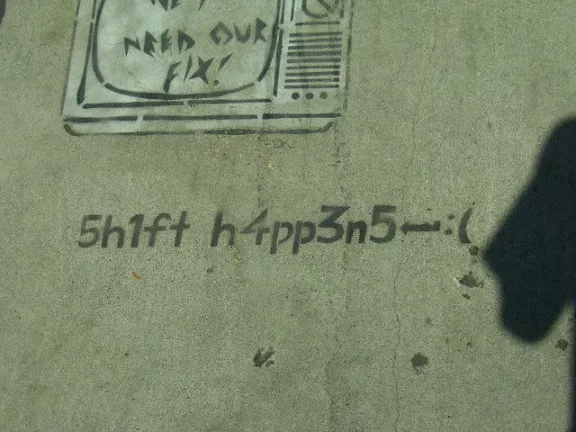 NEED OUR
FIX!
5h1ft h4pp3n5←:(